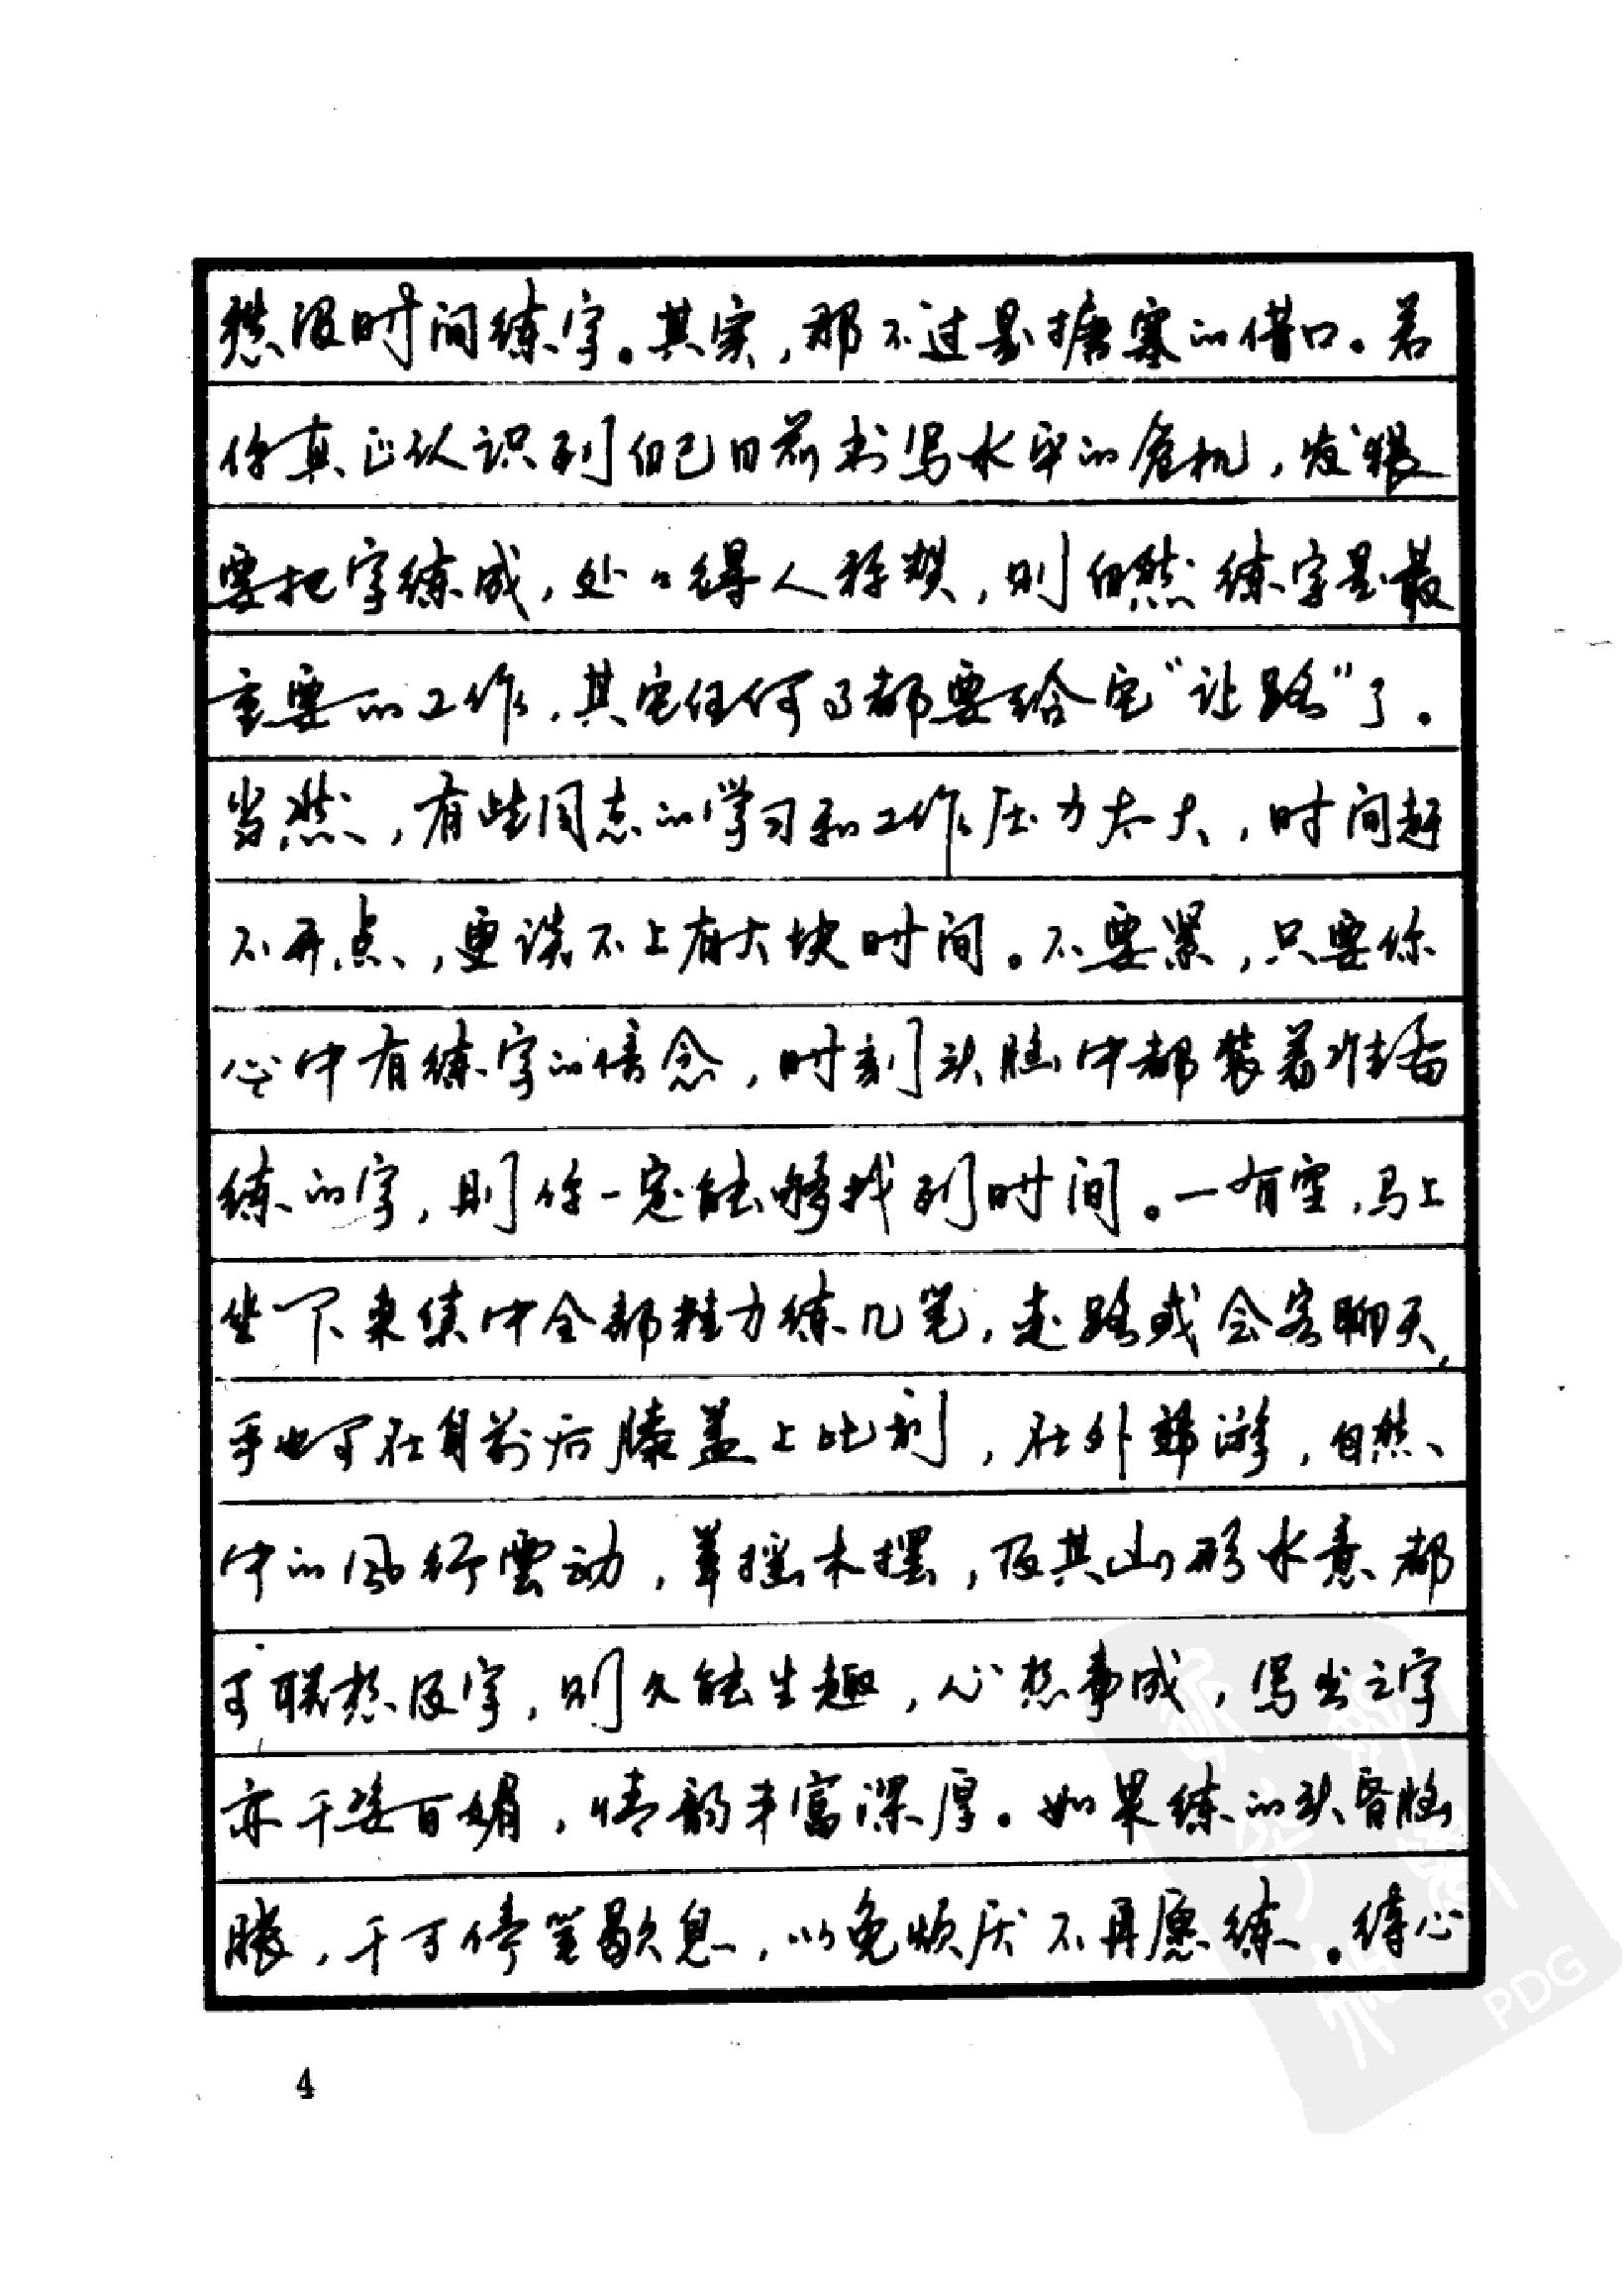 愁没时间练字。其实，那不过是搪塞的借口。若
你真正认识到自己目前书写水平的危机，发狠
要把字练成，处处得人称赞，则自然练字是最
重要的工作，其它任何事都要给它“让路”了。
当然，有些同志的学习和工作压力太大，时间赶
不再点，更谈不上有大块时间。不要紧，只要你
心中有练字的信念，时刻头脑中都装着准备
练的字，则你一定能够找到时间。一有空，马上
坐下来集中全部精力练几笔，走路或会客聊天，
手也可在身前后膝盖上比划，在外郊游，自然
中的风行雲动，草摇木摆，及其山形水意都
可联想及字，则久能生趣，心想事成，写出之字
亦千姿百媚，情韵丰富深厚。如果练的头昏脑
胀，千可停笔歇息，以免烦厌不再愿练。待心
4
PDG